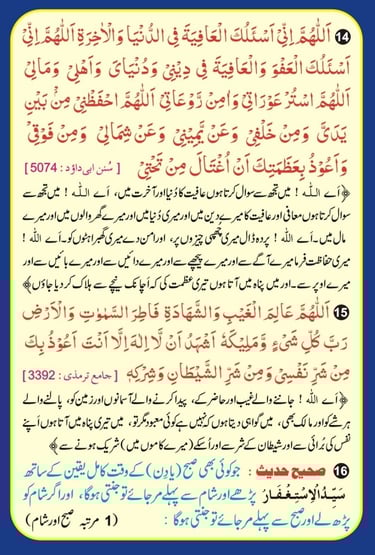 14 اَللّٰهُمَّ اِنِّیْ اَسْئَلُكَ الْعَافِیَةَ فِی الدُّنْیَا وَالْاٰخِرَةِ اَللّٰهُمَّ اِنِّیْ
اَسْئَلُكَ الْعَفْوَ وَالْعَافِیَةَ فِیْ دِیْنِیْ وَدُنْیَایَ وَاَهْلِیْ وَمَالِیْ
اَللّٰهُمَّ اسْتُرْعَوْرَاتِیْ وَاٰمِنْ رَّوْعَاتِیْ اَللّٰهُمَّ احْفَظْنِیْ مِنْۢ بَیْنِ
یَدَیَّ وَمِنْ خَلْفِیْ وَعَنْ یَّمِیْنِیْ وَعَنْ شِمَالِیْ وَمِنْ فَوْقِیْ
وَاَعُوْذُ بِعَظَمَتِكَ اَنْ اُغْتَالَ مِنْ تَحْتِیْ [ سُنن ابی داؤد : 5074 ]
﴿ اَے اللہ ! میں تجھ سے سوال کرتا ہوں عافیت کا دُنیا اور آخرت میں، اَے اللہ ! میں تجھ سے
سوال کرتا ہوں معافی اور عافیت کا میرے دین میں اور میری دُنیا میں اور میرے گھر والوں میں اور میرے
مال میں۔ اَے اللہ ! پردہ ڈال میری چُھپی چیزوں پر، اور امن دے میری گھبراہٹوں کو۔ اَے اللہ !
میری حفاظت فرما میرے آگے سے اور میرے پیچھے سے اور میرے دائیں سے اور میرے بائیں سے اور
میرے اوپر سے۔ اور میں پناہ میں آتا ہوں تیری عظمت کی کہ اَچانک نیچے سے ہلاک کر دیا جاؤں ﴾
15 اَللّٰهُمَّ عَالِمَ الْغَیْبِ وَالشَّهَادَةِ فَاطِرَ السَّمٰوٰتِ وَالْاَرْضِ
رَبَّ كُلِّ شَیْءٍ وَّمَلِیْكَهٗ اَشْهَدُ اَنْ لَّا اِلٰهَ اِلَّا اَنْتَ اَعُوْذُ بِكَ
مِنْ شَرِّ نَفْسِیْ وَمِنْ شَرِّ الشَّیْطَانِ وَشِرْكِهٖ [ جامع ترمذی : 3392 ]
﴿ اَے اللہ ! جاننے والے غیب اور حاضر کے، پیدا کرنے والے آسمانوں اور زمین کو، پالنے والے
ہر شے کو اور مالک بھی، میں گواہی دیتا ہوں کہ نہیں ہے کوئی معبود مگر تو، میں تیری پناہ میں آتا ہوں اَپنے
نفس کی بُرائی سے اور شیطان کے شر سے اور اُسکے (میرے کاموں میں) شریک ہونے سے ﴾
16 صحیح حدیث : جو کوئی بھی صبح (یا دِن) کے وقت کامل یقین کے ساتھ
سَیِّدُ الْاِسْتِغْفَار پڑھے اور شام سے پہلے مرجائے تو جنتی ہوگا، اور اگر شام کو
پڑھ لے اور صبح سے پہلے مرجائے تو جنتی ہوگا : (1 مرتبہ صبح اور شام)